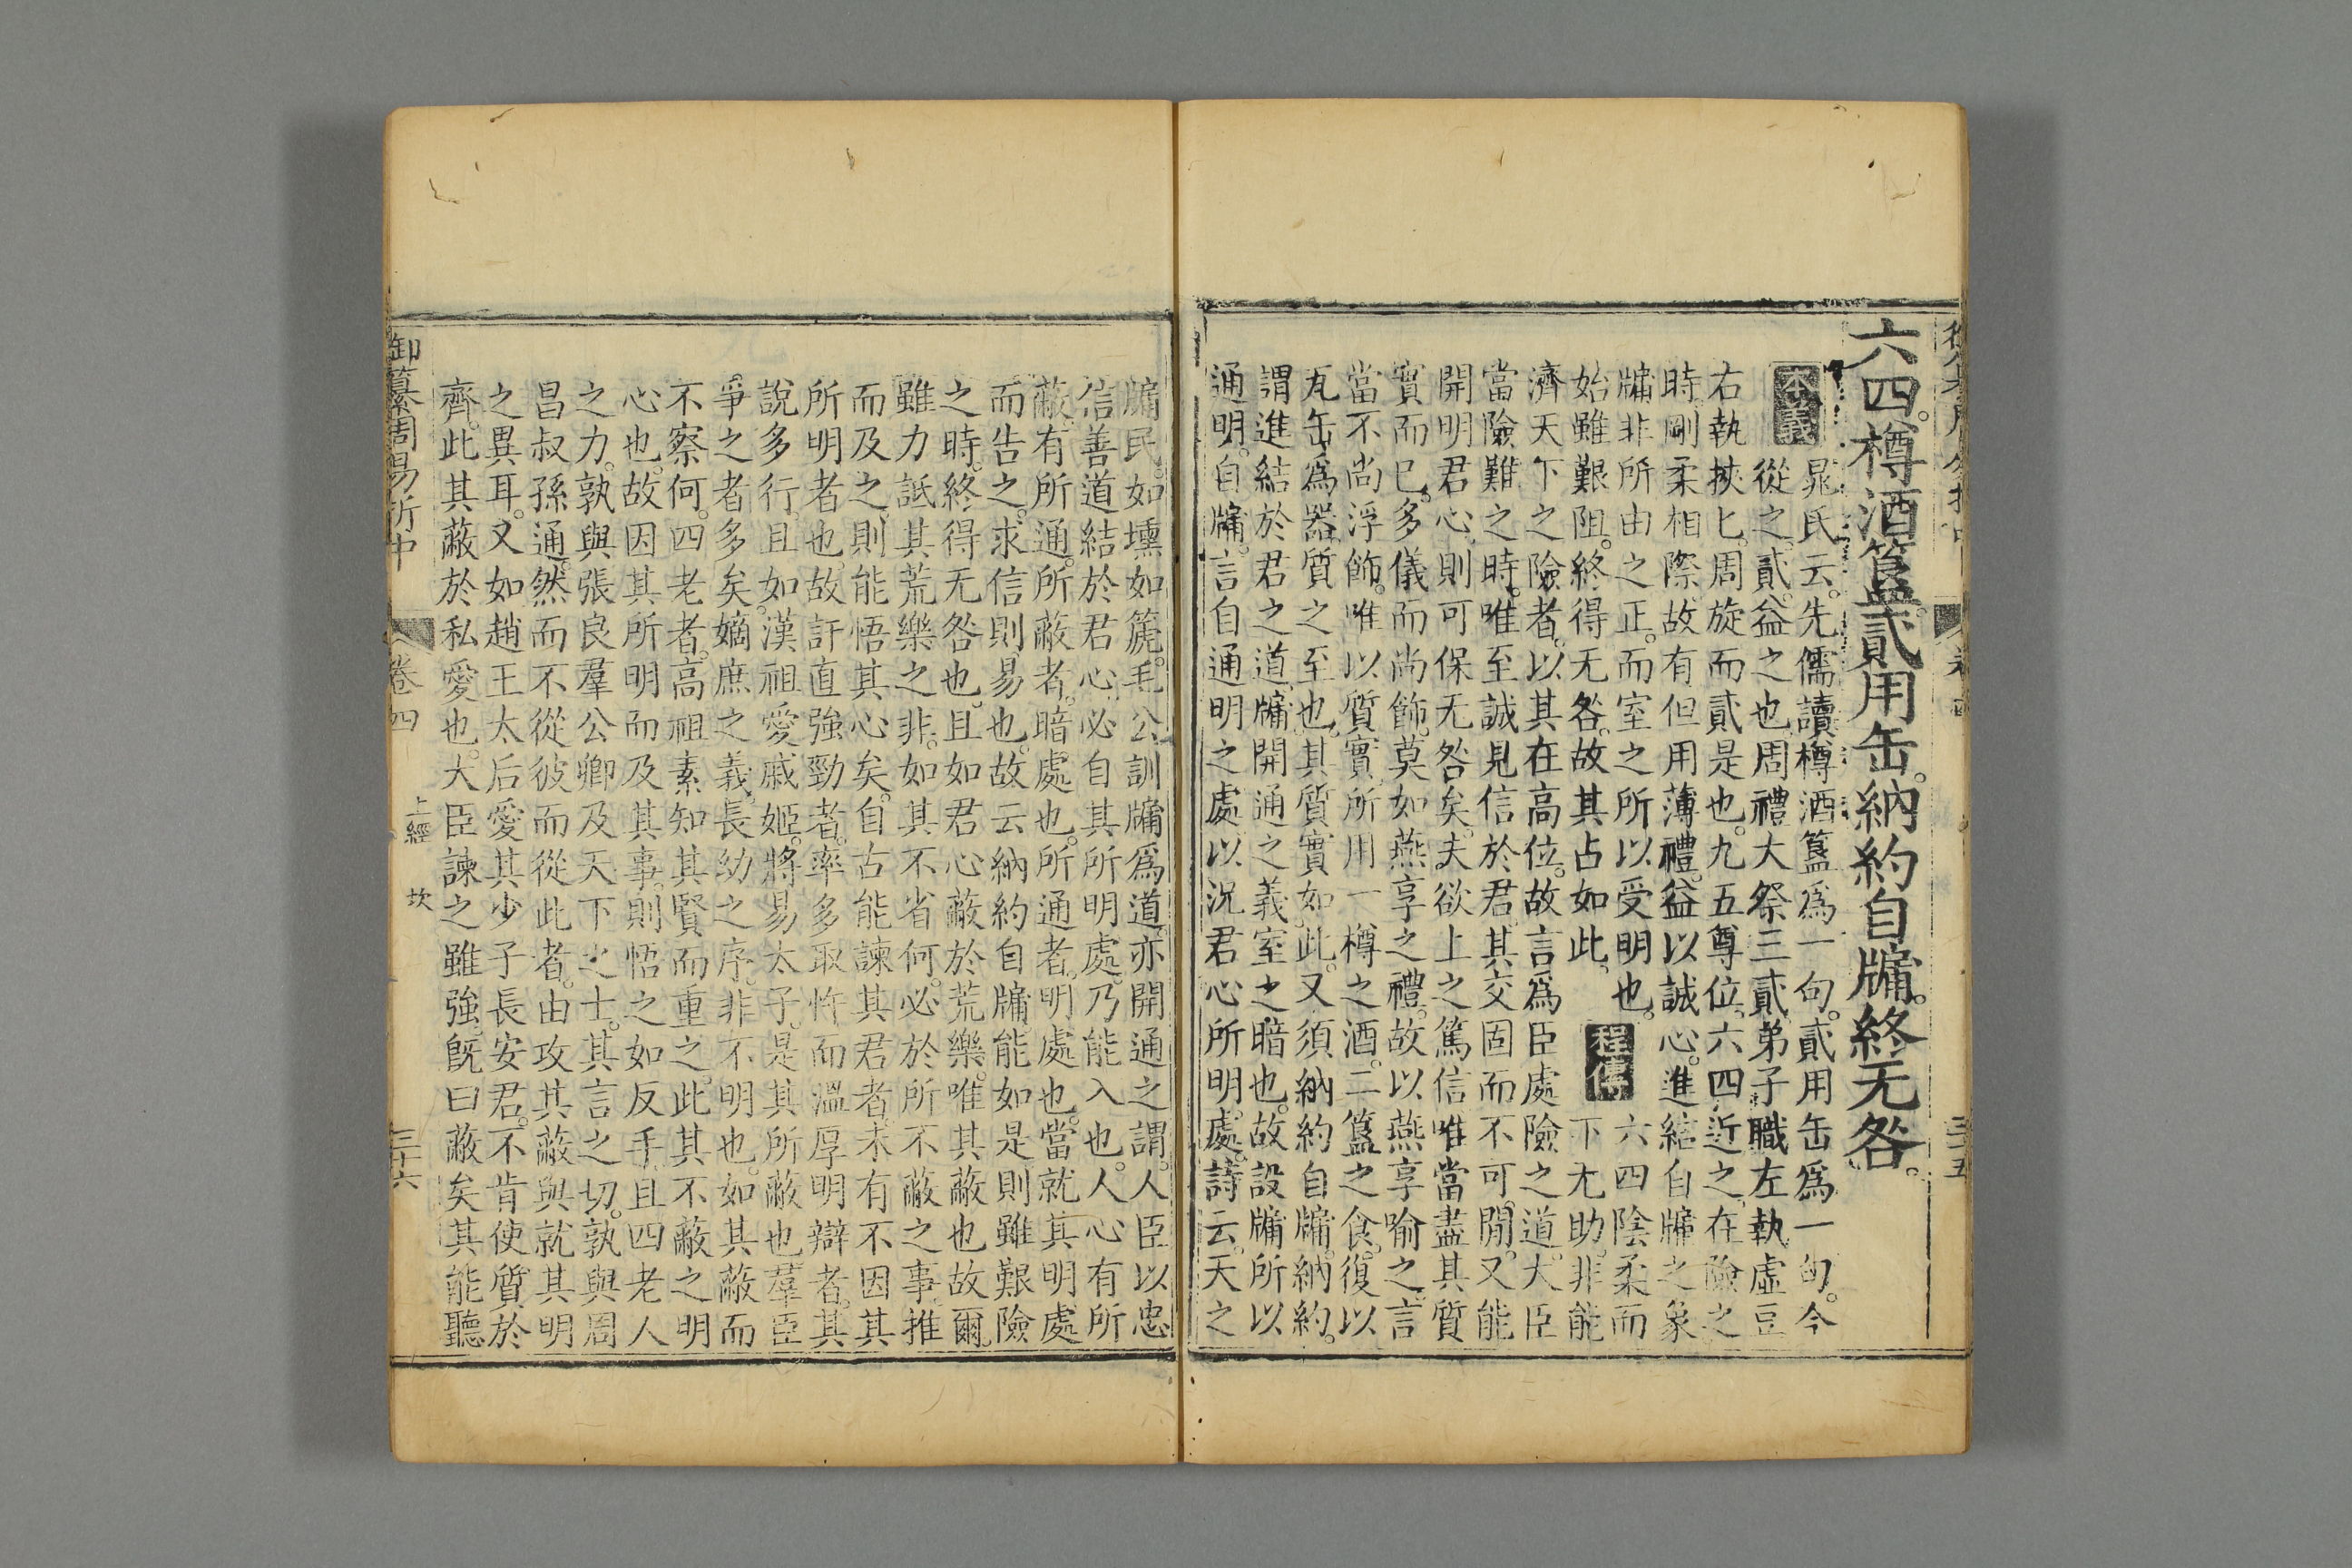 六四。樽酒簋貳用缶。納約自牖。終无咎。
本義
晁氏云。先儒讀樽酒簋為一句。貳用缶爲一句。今
從之。貳。益之也。周禮大祭三貳。弟子職左執虛豆
右執挾匕。周旋而貳是也。九五尊位。六四近之。在險之
時。剛柔相際。故有但用薄禮。益以誠心。進結自牖之象
牖非所由之正。而室之所以受明也。
始雖艱阻。終得无咎。故其占如此。
程傳
六四陰柔而
下无助。非能
濟天下之險者。以其在高位。故言爲臣處險之道。大臣
當險難之時。唯至誠見信於君。其交固而不可閒。又能
開明君心。則可保无咎矣。夫欲上之篤信唯當盡其質
實而已。多儀而尚飾。莫如燕享之禮。故以燕享喻之。言
當不尚浮飾。唯以質實。所用一樽之酒。二簋之食。復以
瓦缶爲器。質之至也。其質實如此。又須納約自牖。納約。
謂進結於君之道。牖。開通之義。室之暗也。故設牖所以
通明。自牖。言自通明之處以況君心所明處。詩云。天之
牖民。如壎如篪。毛公訓牖爲道。亦開通之謂。人臣以忠
信善道結於君心。必自其所明處。乃能入也。人心有所
蔽。有所通。所蔽者。暗處也。所通者。明處也。當就其明處
而告之。求信則易也。故云納約自牖。能如是則雖艱險
之時。終得无咎也。且如君心蔽於荒樂。唯其蔽也故爾。
雖力詆其荒樂之非。如其不省何。必於所不蔽之事。推
而及之。則能悟其心矣。自古能諫其君者。未有不因其
所明者也。故訐直強勁者。率多取忤。而溫厚明辯者。其
說多行。且如漢祖愛戚姬。將易太子。是其所蔽也。羣臣
爭之者多矣。嫡庶之義。長幼之序。非不明也。如其蔽而
不察何。四老者。高祖素知其賢而重之。此其不蔽之明
心也。故因其所明而及其事。則悟之如反手。且四老人
之力。孰與張良羣公卿及天下之士。其言之切。孰與周
昌叔孫通。然而不從彼而從此者。由攻其蔽與就其明
之異耳。又如趙王太后愛其少子長安君。不肯使質於
齊。此其蔽於私愛也。大臣諫之雖強。既曰蔽矣其能聽
御纂周易折中 卷四 上經 坎 三十六